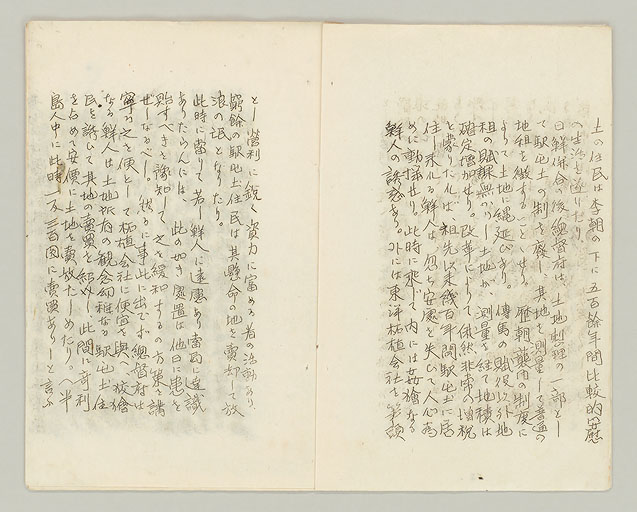 土の住民は李朝の下に五百餘年間比較的安慰
の生活を送りたり
日韓併合後總督府は土地整理の一部とし
て駅屯土の制を廢し其地を測量して普通の
地租を徴することゝせり 歴朝襲用の制度に
よつて土地に縄延びあり 傳馬の賦役以外地
租の賦課無かりし土地が 測量を経て地積は
確定増加せり。改革によりて俄然非常の増税
と蒙りた化は 祖先以来幾百年間駅屯土に居
住し来れる鮮人は 忽ち安慰を失ひて人心為
めに動揺せり。此時に乗じて内には奸獪なる
鮮人の誘惑あり。外には東洋柘植会社を筆頭
とし營利に鋭く資力に富める者の活動あり
窮餘の駅屯土住民は其懸命の地を賣却して放
浪の氓となりたり。
此時に當りて若し鮮人に遠慮あり富民に達識
ありたらんには 此の如き處置は他日に患を
貽すべきを豫知して 之を緩和するの方策を講
ぜしなるべし。然るに事此に出でず總督府は
寧ろ之を便として柘植会社に便宜を與へ 狡獪
なる鮮人は土地所有の観念幼稚なる駅屯土住
民を誘ひて其地の賣買を紹介し此間に奇利
を占めて安價に土地を賣放たしめたり。(半
島人中に此時一反三百圓に賣買ありしと言ふ